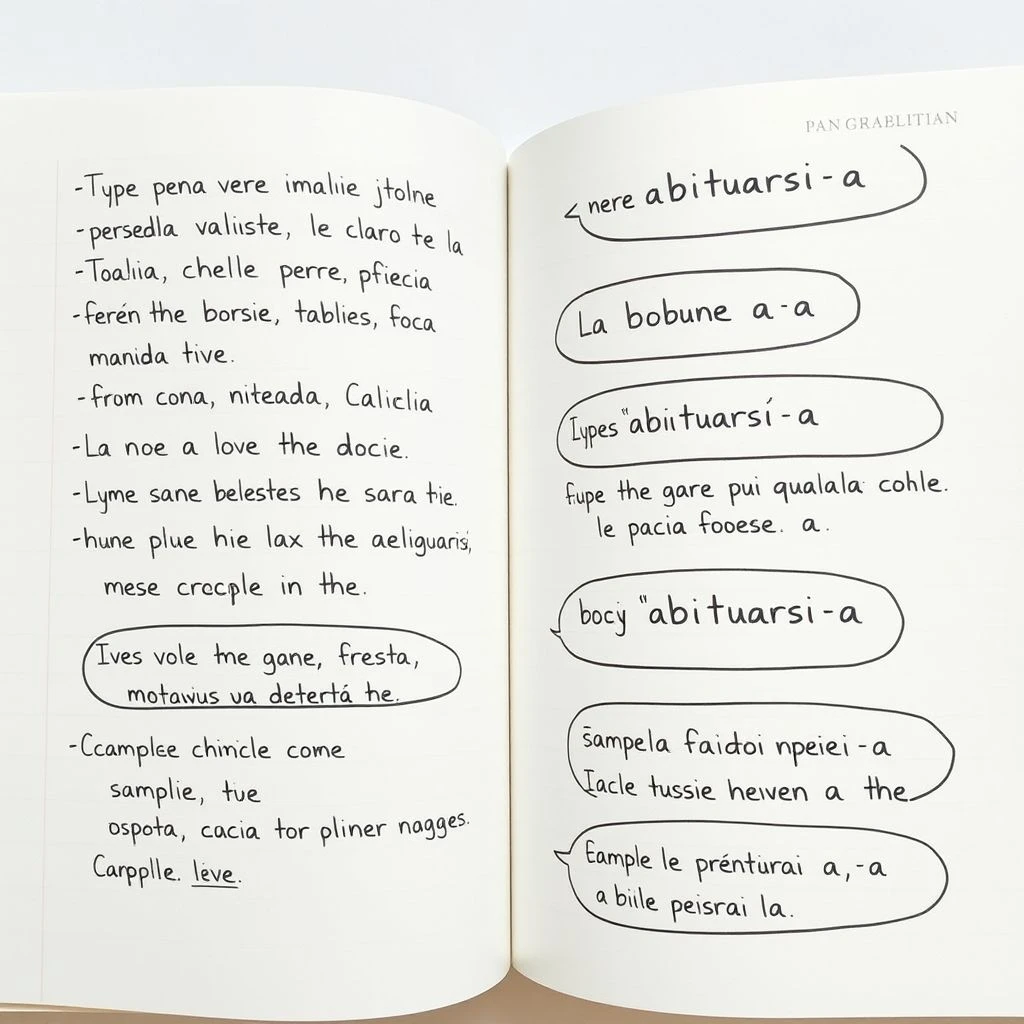 -Type pena vere imaliie jtolne
-persedla valiiste, le claro te la
-Toalıia, chelle perre, pfiecia
-ferén the borsie, tablies, foca
manida tive.
-from cona, niteada, Caliclia
-La noe a love the docie.
-Lyme sane belestes he sara tie.
-hune plue hie lax the aeliguarisi,
mese crocple in the.
Ives vole the gane, fresta,
motawus va detertá he.
-Ccamplee chinicle come
samplie, tve
ospota, cacia tor pliner nagges.
Carpplle. leve.
PAN GRABLITIAN
nere abituarsi-a
La bobune a-a
Iypes "abiituarsí-a
fupe the gare pui qualala cohle.
le pacia fooese. a.
bocy "abituarsi-a
Sampela faidoi npeiei-a
Iacle tussie heiven a the
Eample le prénturai a,-a
a biile peisrai la.